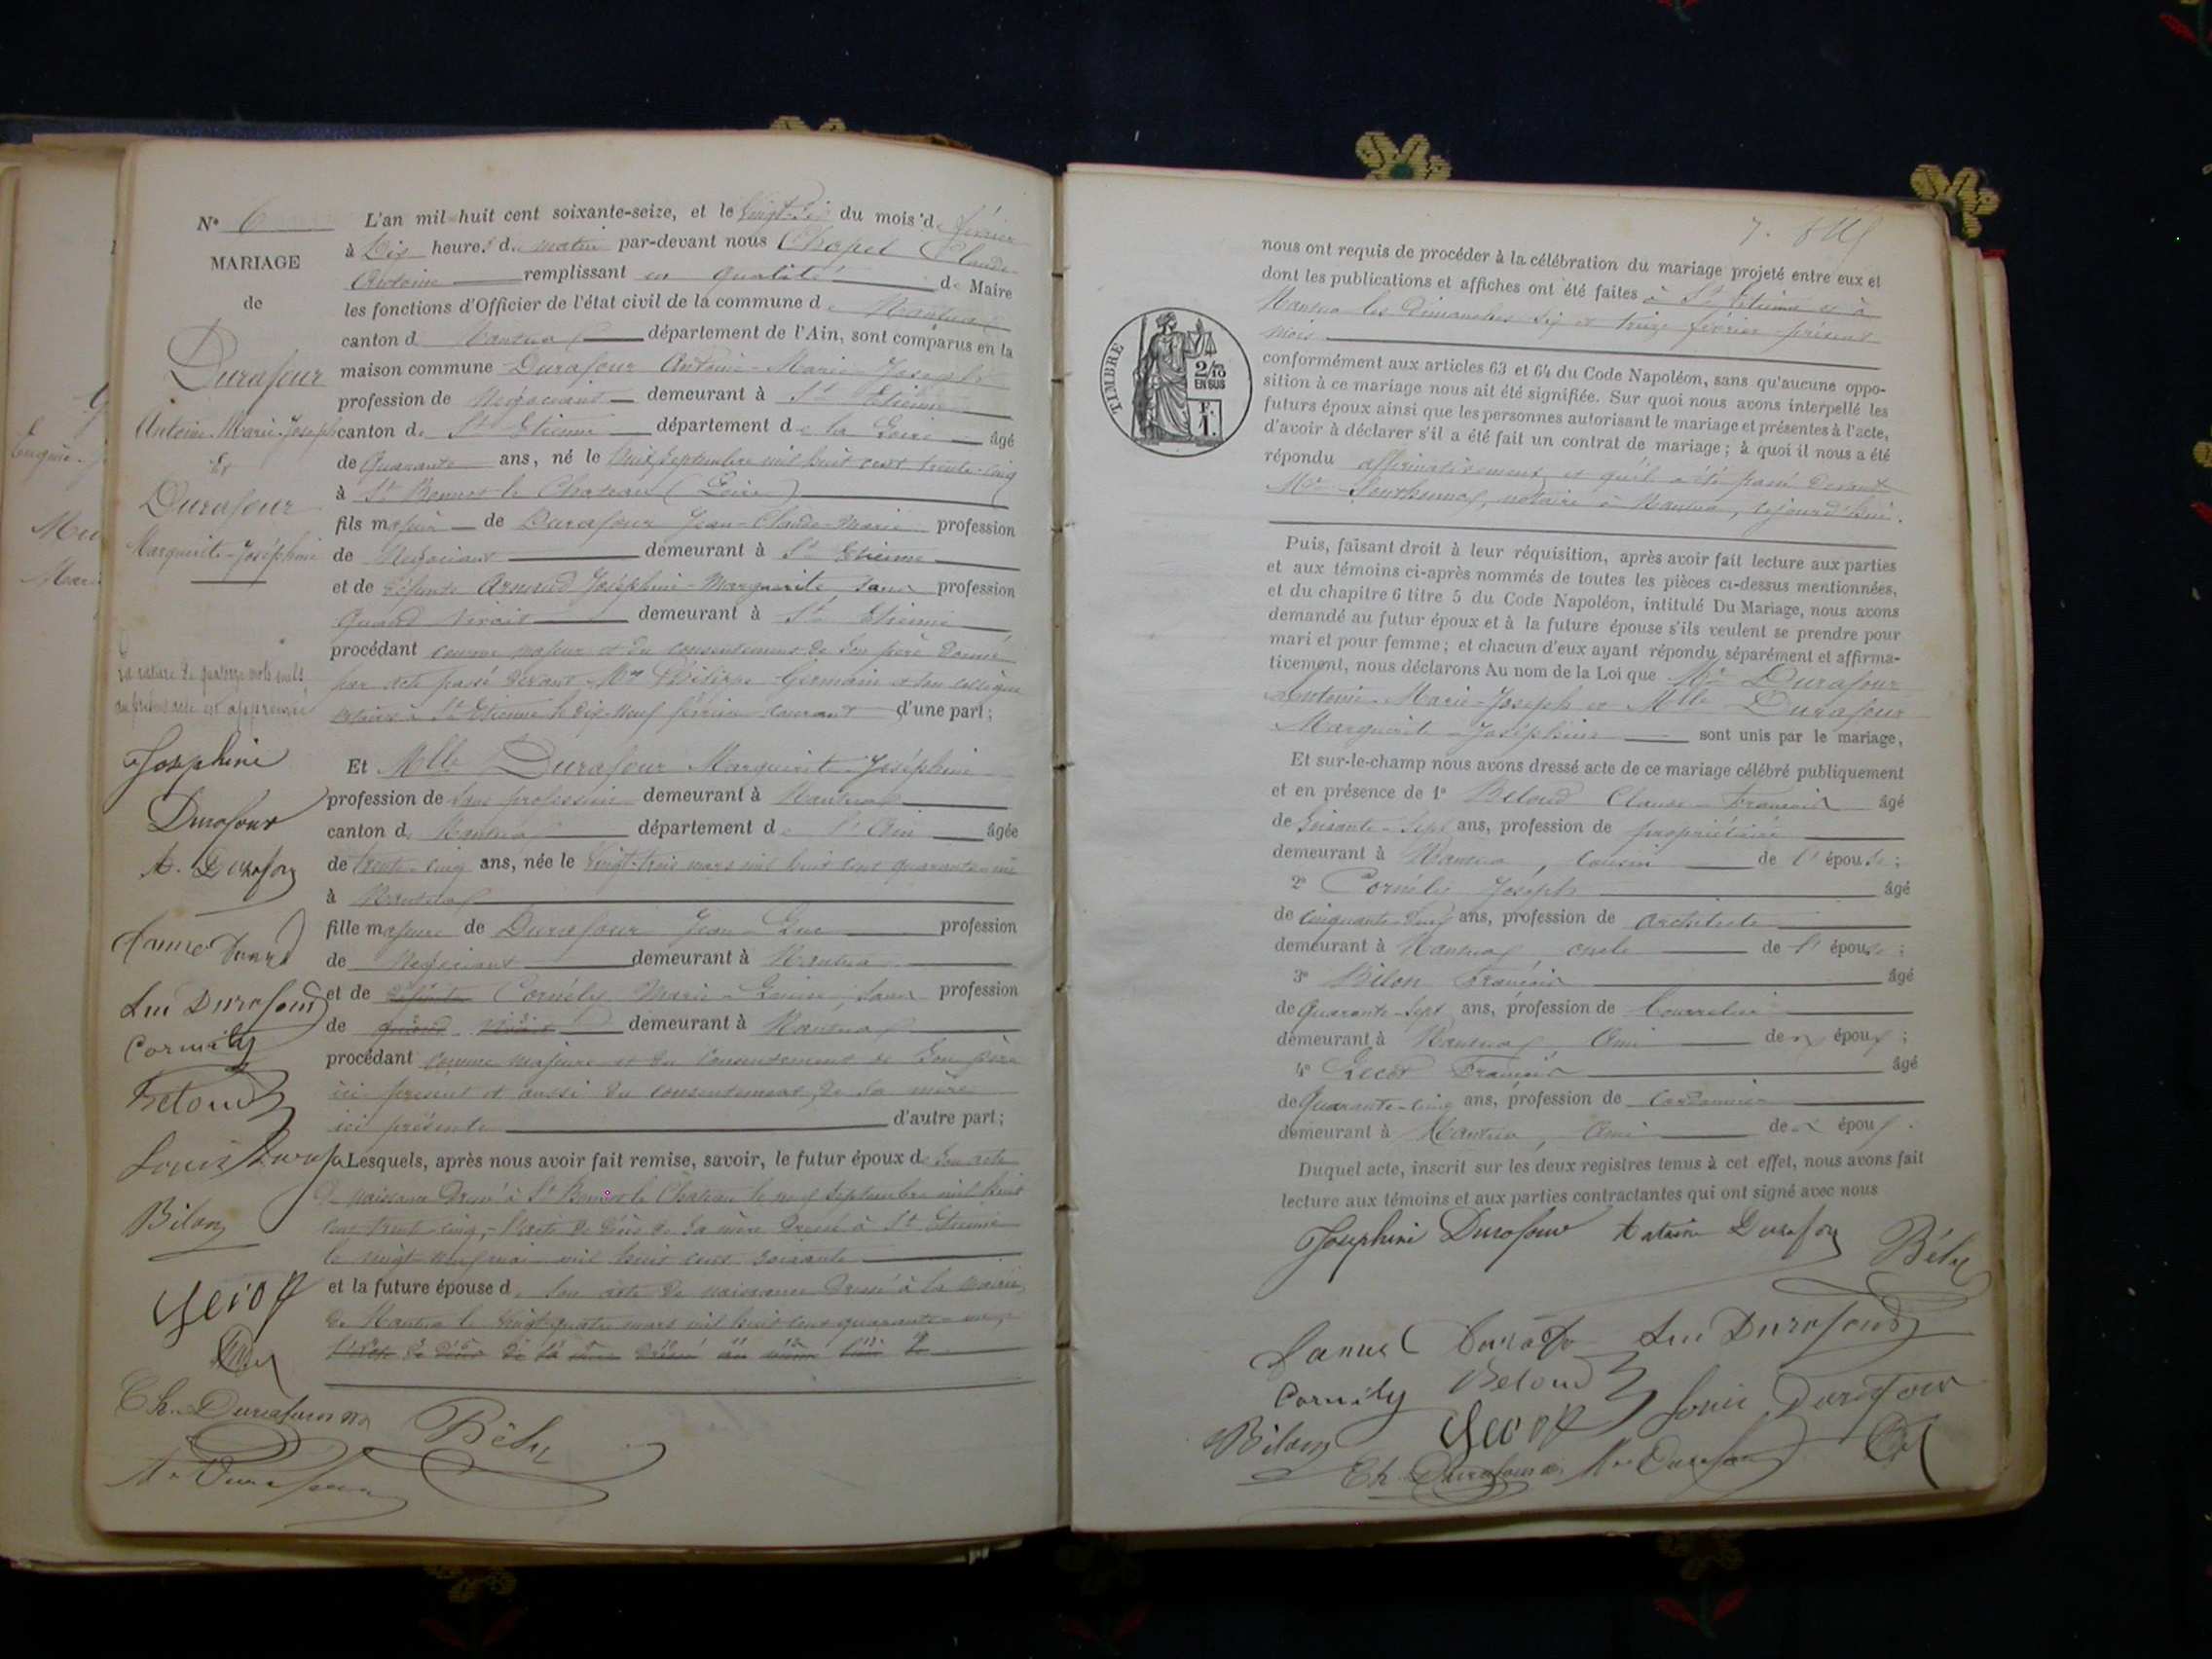 N° 6
MARIAGE
de
Durafour
Antoine-Marie-Joseph
Et
Durafour
Marguerite-Joséphine
La rature de quatorze mots nuls
au présent acte est approuvée
Josephine
Durafour
A. Durafour
Luc Durafour
Cornély
Beloud
Louis Durafour
Bilon
Ch. Durafour
Béhy
L'an mil huit cent soixante-seize, et le vingt-six du mois de février
à Dix heures du matin par-devant nous Chapel Claude
Antoine remplissant en qualité de Maire
les fonctions d'Officier de l'état civil de la commune de Nantua
canton de Nantua département de l'Ain, sont comparus en la
maison commune Durafour Antoine-Marie-Joseph
profession de Négociant demeurant à St Etienne
canton de St Etienne département de la Loire âgé
de Quarante ans, né le huit Septembre mil huit cent trente-cinq
à St Bonnet le Chateau (Loire)
fils majeur de Durafour Jean-Claude-Marie profession
de Négociant demeurant à St Etienne
et de défunte Arnaud Joséphine-Marguerite, sans profession
Quand vivait demeurant à St Etienne
procédant comme majeur et du consentement de son père donné
par acte passé devant Me Philippe Germain et son collègue
notaires à St Etienne le dix-neuf février courant d'une part;
Et Melle Durafour Marguerite-Joséphine
profession de sans profession demeurant à Nantua
canton de Nantua département de l'Ain âgée
de trente-cinq ans, née le vingt-trois mars mil huit cent quarante-un
à Nantua
fille majeure de Durafour Jean-Luc profession
de Négociant demeurant à Nantua
et de défunte Cornély Marie-Louise, sans profession
de quand vivait demeurant à Nantua
procédant comme majeure et du consentement de son père
ici présent et aussi du consentement de sa mère
ici présente d'autre part;
Lesquels, après nous avoir fait remise, savoir, le futur époux de son acte
de naissance dressé à St Bonnet le Chateau le neuf Septembre mil huit
cent trente-cinq, l'acte de décès de sa mère dressé à St Etienne
le vingt neuf mai mil huit cent soixante
et la future épouse de son acte de naissance dressé à la mairie
de Nantua le vingt-quatre mars mil huit cent quarante-un,
l'acte de décès de sa mère dressé au même lieu le
7.
TIMBRE
2/10
EN SUS
F.
1.
nous ont requis de procéder à la célébration du mariage projeté entre eux et
dont les publications et affiches ont été faites à St Etienne et à
Nantua les Dimanches six et treize février présent
mois
conformément aux articles 63 et 64 du Code Napoléon, sans qu'aucune oppo-
sition à ce mariage nous ait été signifiée. Sur quoi nous avons interpellé les
futurs époux ainsi que les personnes autorisant le mariage et présentes à l'acte,
d'avoir à déclarer s'il a été fait un contrat de mariage; à quoi il nous a été
répondu affirmativement et qu'il a été passé devant
Me notaire à Nantua, cejourd'hui.
Puis, faisant droit à leur réquisition, après avoir fait lecture aux parties
et aux témoins ci-après nommés de toutes les pièces ci-dessus mentionnées,
et du chapitre 6 titre 5 du Code Napoléon, intitulé Du Mariage, nous avons
demandé au futur époux et à la future épouse s'ils veulent se prendre pour
mari et pour femme; et chacun d'eux ayant répondu séparément et affirma-
tivement, nous déclarons Au nom de la Loi que Mr Durafour
Antoine-Marie-Joseph et Melle Durafour
Marguerite-Joséphine sont unis par le mariage,
Et sur-le-champ nous avons dressé acte de ce mariage célébré publiquement
et en présence de 1° Beloud Claude-François âgé
de soixante-sept ans, profession de propriétaire
demeurant à Nantua, cousin de l'épouse;
2° Cornély Joseph âgé
de cinquante-neuf ans, profession de architecte
demeurant à Nantua, oncle de l'épouse;
3° Bilon François âgé
de Quarante-sept ans, profession de Bourrelier
demeurant à Nantua, Ami des époux;
4° Lecot François âgé
de Quarante-cinq ans, profession de Cordonnier
demeurant à Nantua, Ami des époux.
Duquel acte, inscrit sur les deux registres tenus à cet effet, nous avons fait
lecture aux témoins et aux parties contractantes qui ont signé avec nous
Josephine Durafour Antoine Durafour Béhy
Luc Durafour
Cornély Beloud Louis Durafour
Bilon
Ch. Durafour